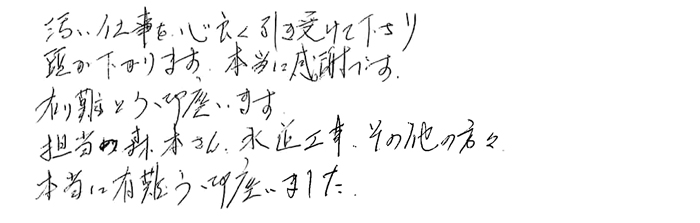 汚い仕事を心良く引き受けて下さり
頭が下がります。本当に感謝です。
有り難とう御座います。
担当の森本さん、水道工事、その他の方々
本当に有難う御座いました。